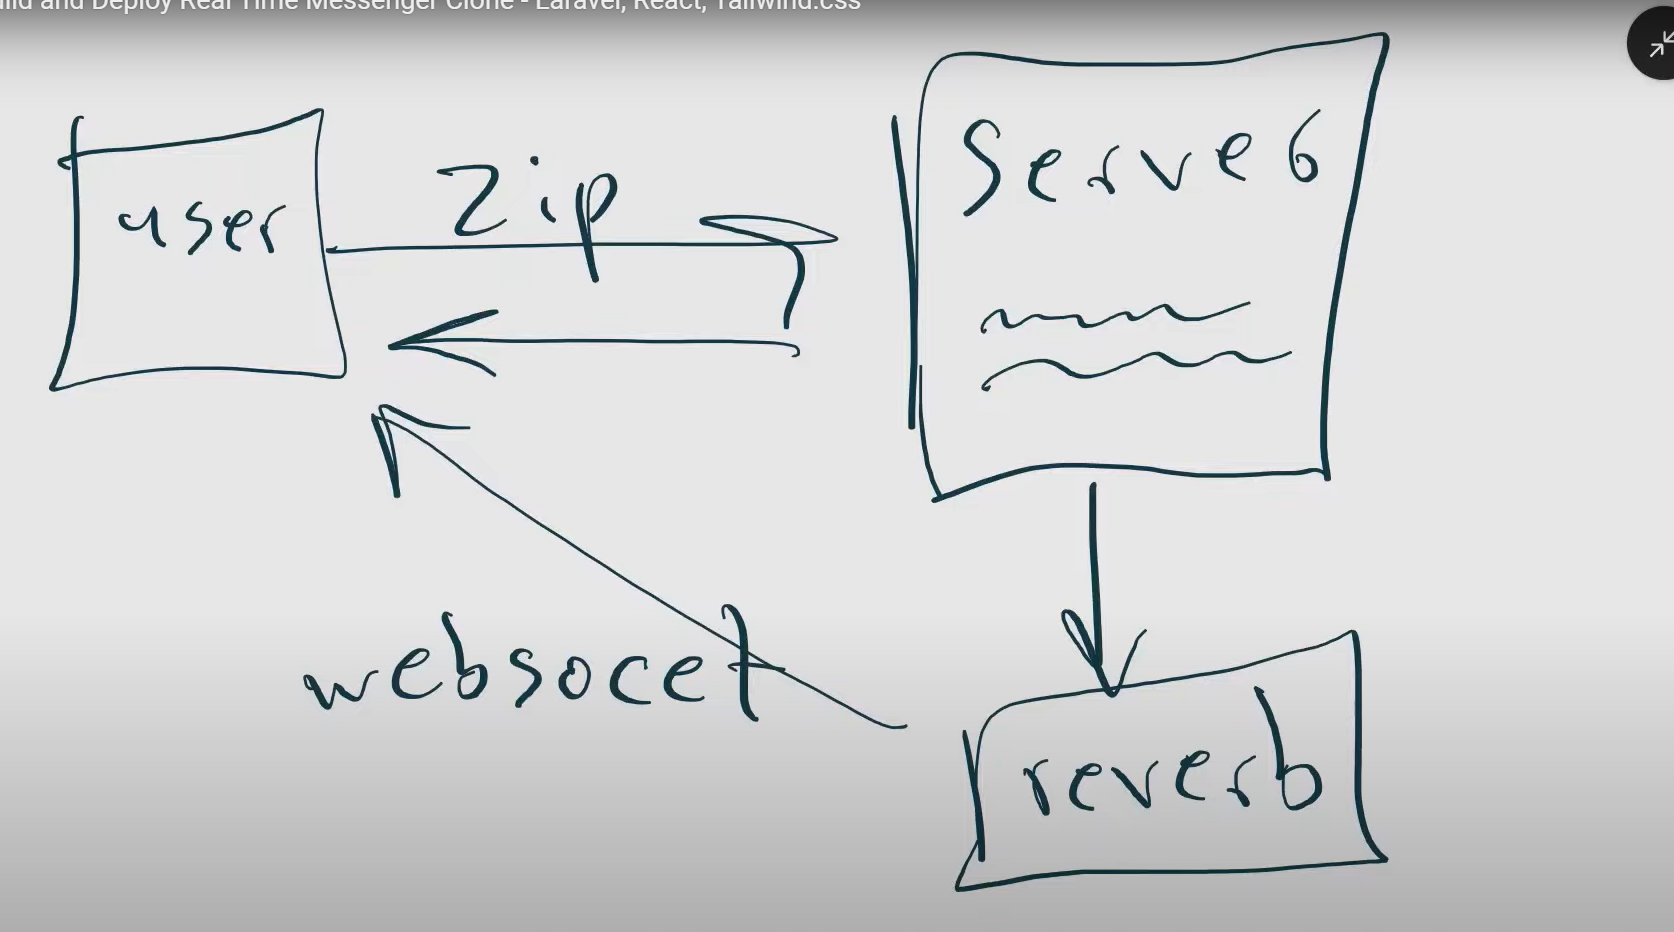 ild and Deploy Real Time Messenger Clone - Laravel, React, Tailwind.css
user
Zip
Serve6
websocet
reverb